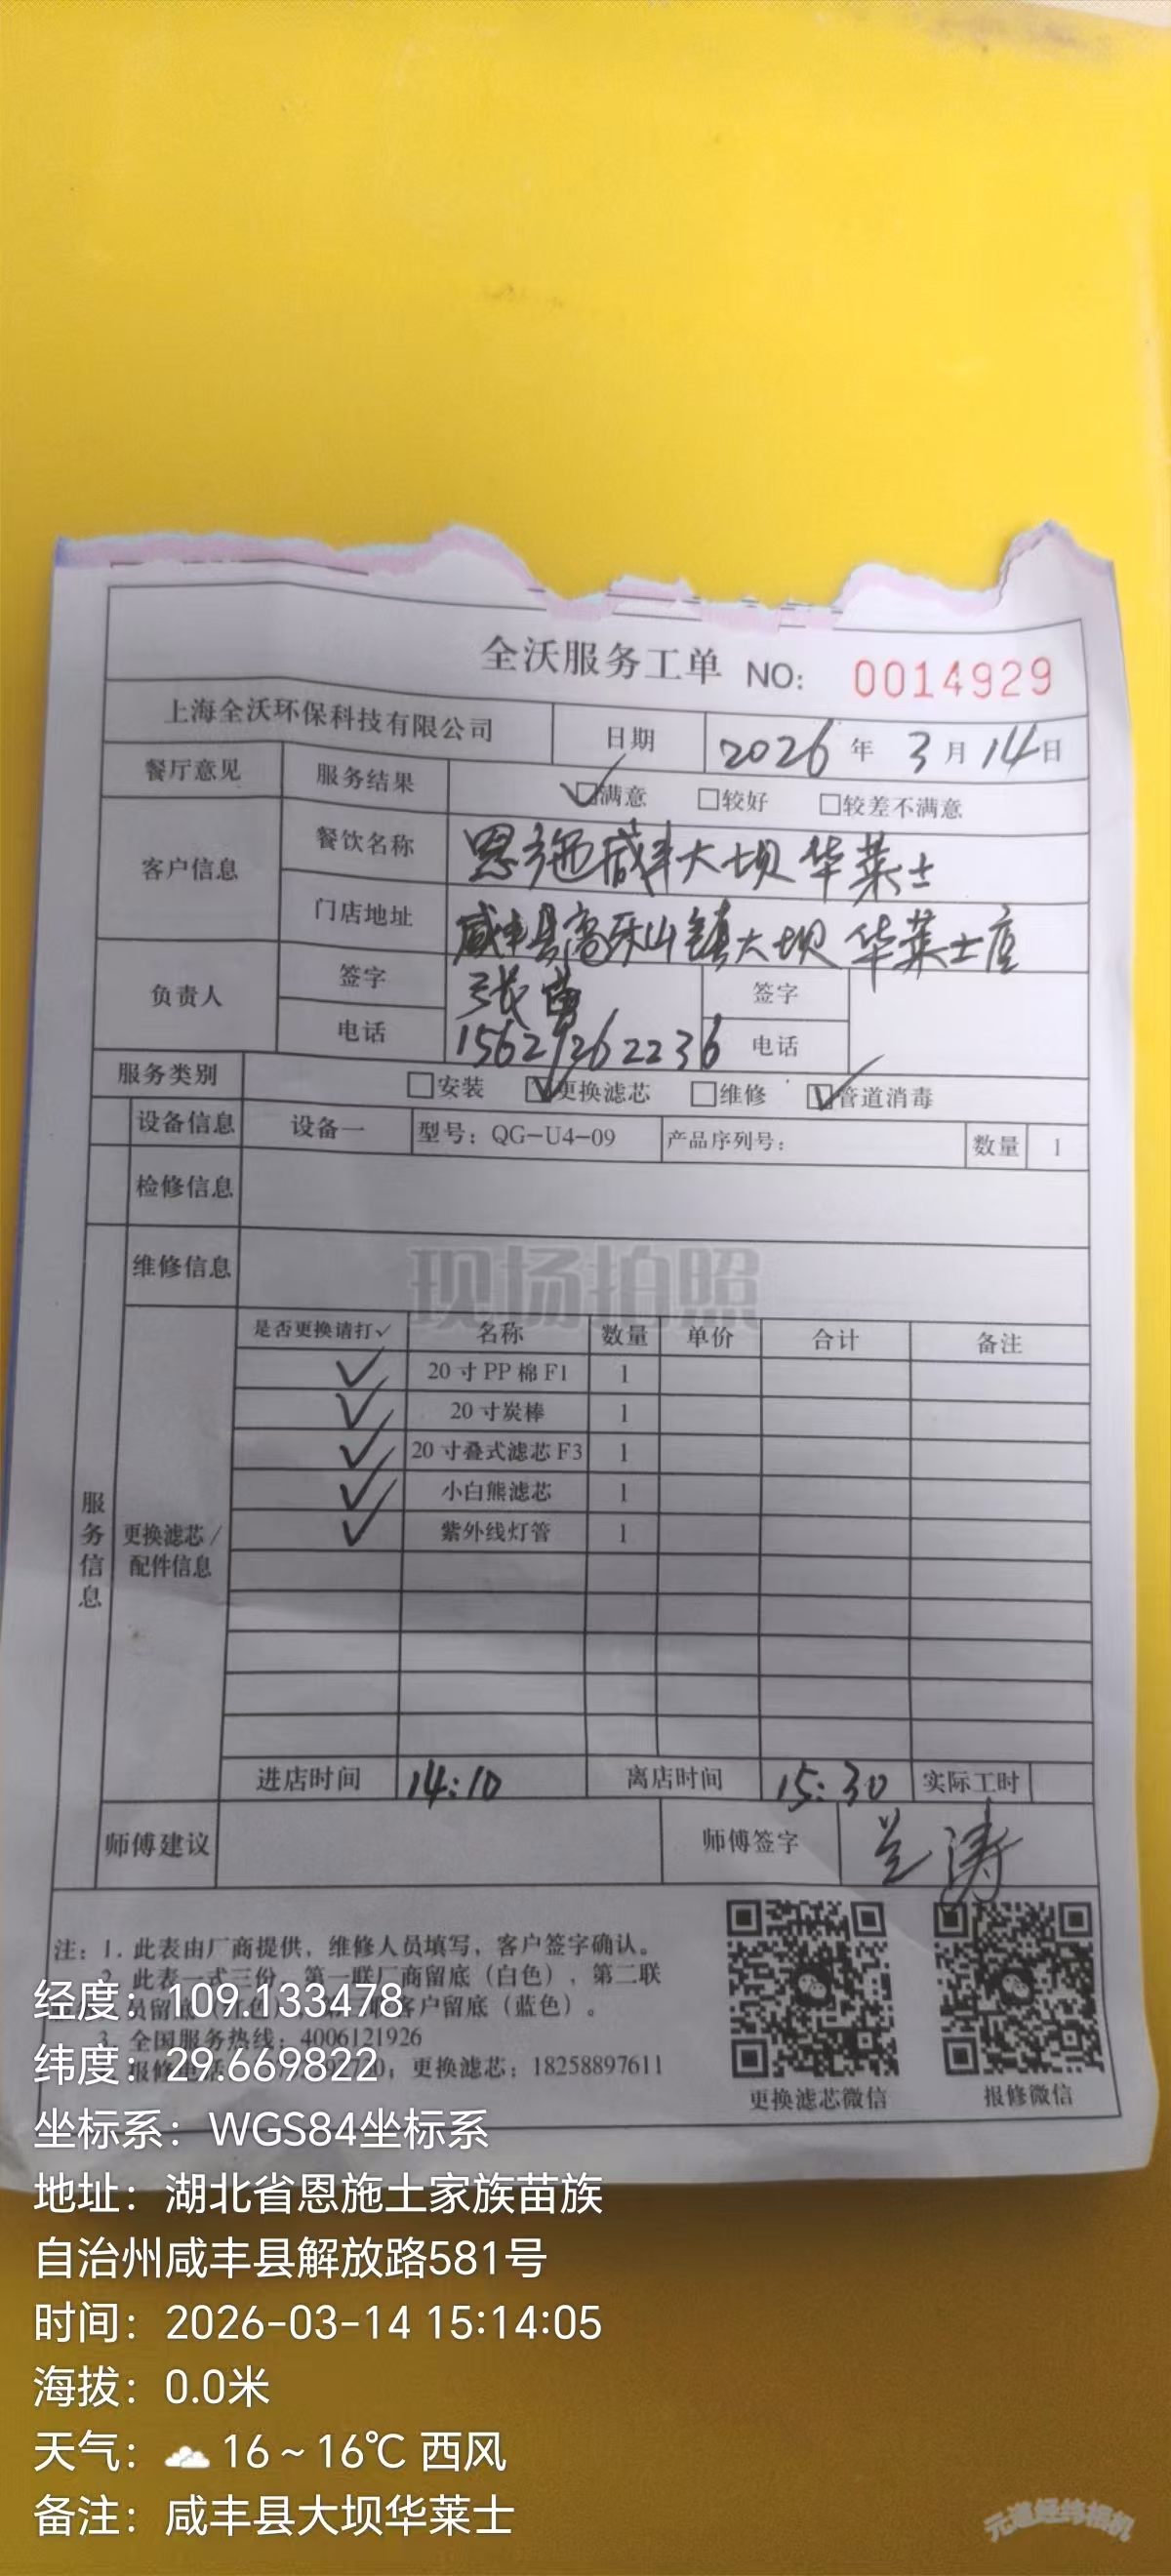 全沃服务工单 NO: 0014929
上海全沃环保科技有限公司 日期 2026年3月14日
餐厅意见 服务结果 ☑满意 □较好 □较差不满意
客户信息 餐饮名称 恩施咸丰大坝华莱士
门店地址 咸丰县高乐山镇大坝 华莱士店
负责人 签字 张 签字
电话 15629262236 电话
服务类别 □安装 ☑更换滤芯 □维修 ☑管道消毒
设备信息 设备一 型号：QG-U4-09 产品序列号： 数量 1
检修信息
维修信息
现场拍照
服务信息
更换滤芯/配件信息
是否更换请打✓ 名称 数量 单价 合计 备注
✓ 20寸PP棉F1 1
✓ 20寸炭棒 1
✓ 20寸叠式滤芯F3 1
✓ 小白熊滤芯 1
✓ 紫外线灯管 1
进店时间 14:10 离店时间 15:30 实际工时
师傅建议 师傅签字 兰涛
注：1. 此表由厂商提供，维修人员填写，客户签字确认。
2. 此表一式三份，第一联厂商留底（白色），第二联
员留底 客户留底（蓝色）。
3. 全国服务热线：4006121926
报修 更换滤芯：18258897611
更换滤芯微信 报修微信
经度：109.133478
纬度：29.669822
坐标系：WGS84坐标系
地址：湖北省恩施土家族苗族
自治州咸丰县解放路581号
时间：2026-03-14 15:14:05
海拔：0.0米
天气：16~16℃ 西风
备注：咸丰县大坝华莱士
元道经纬相机